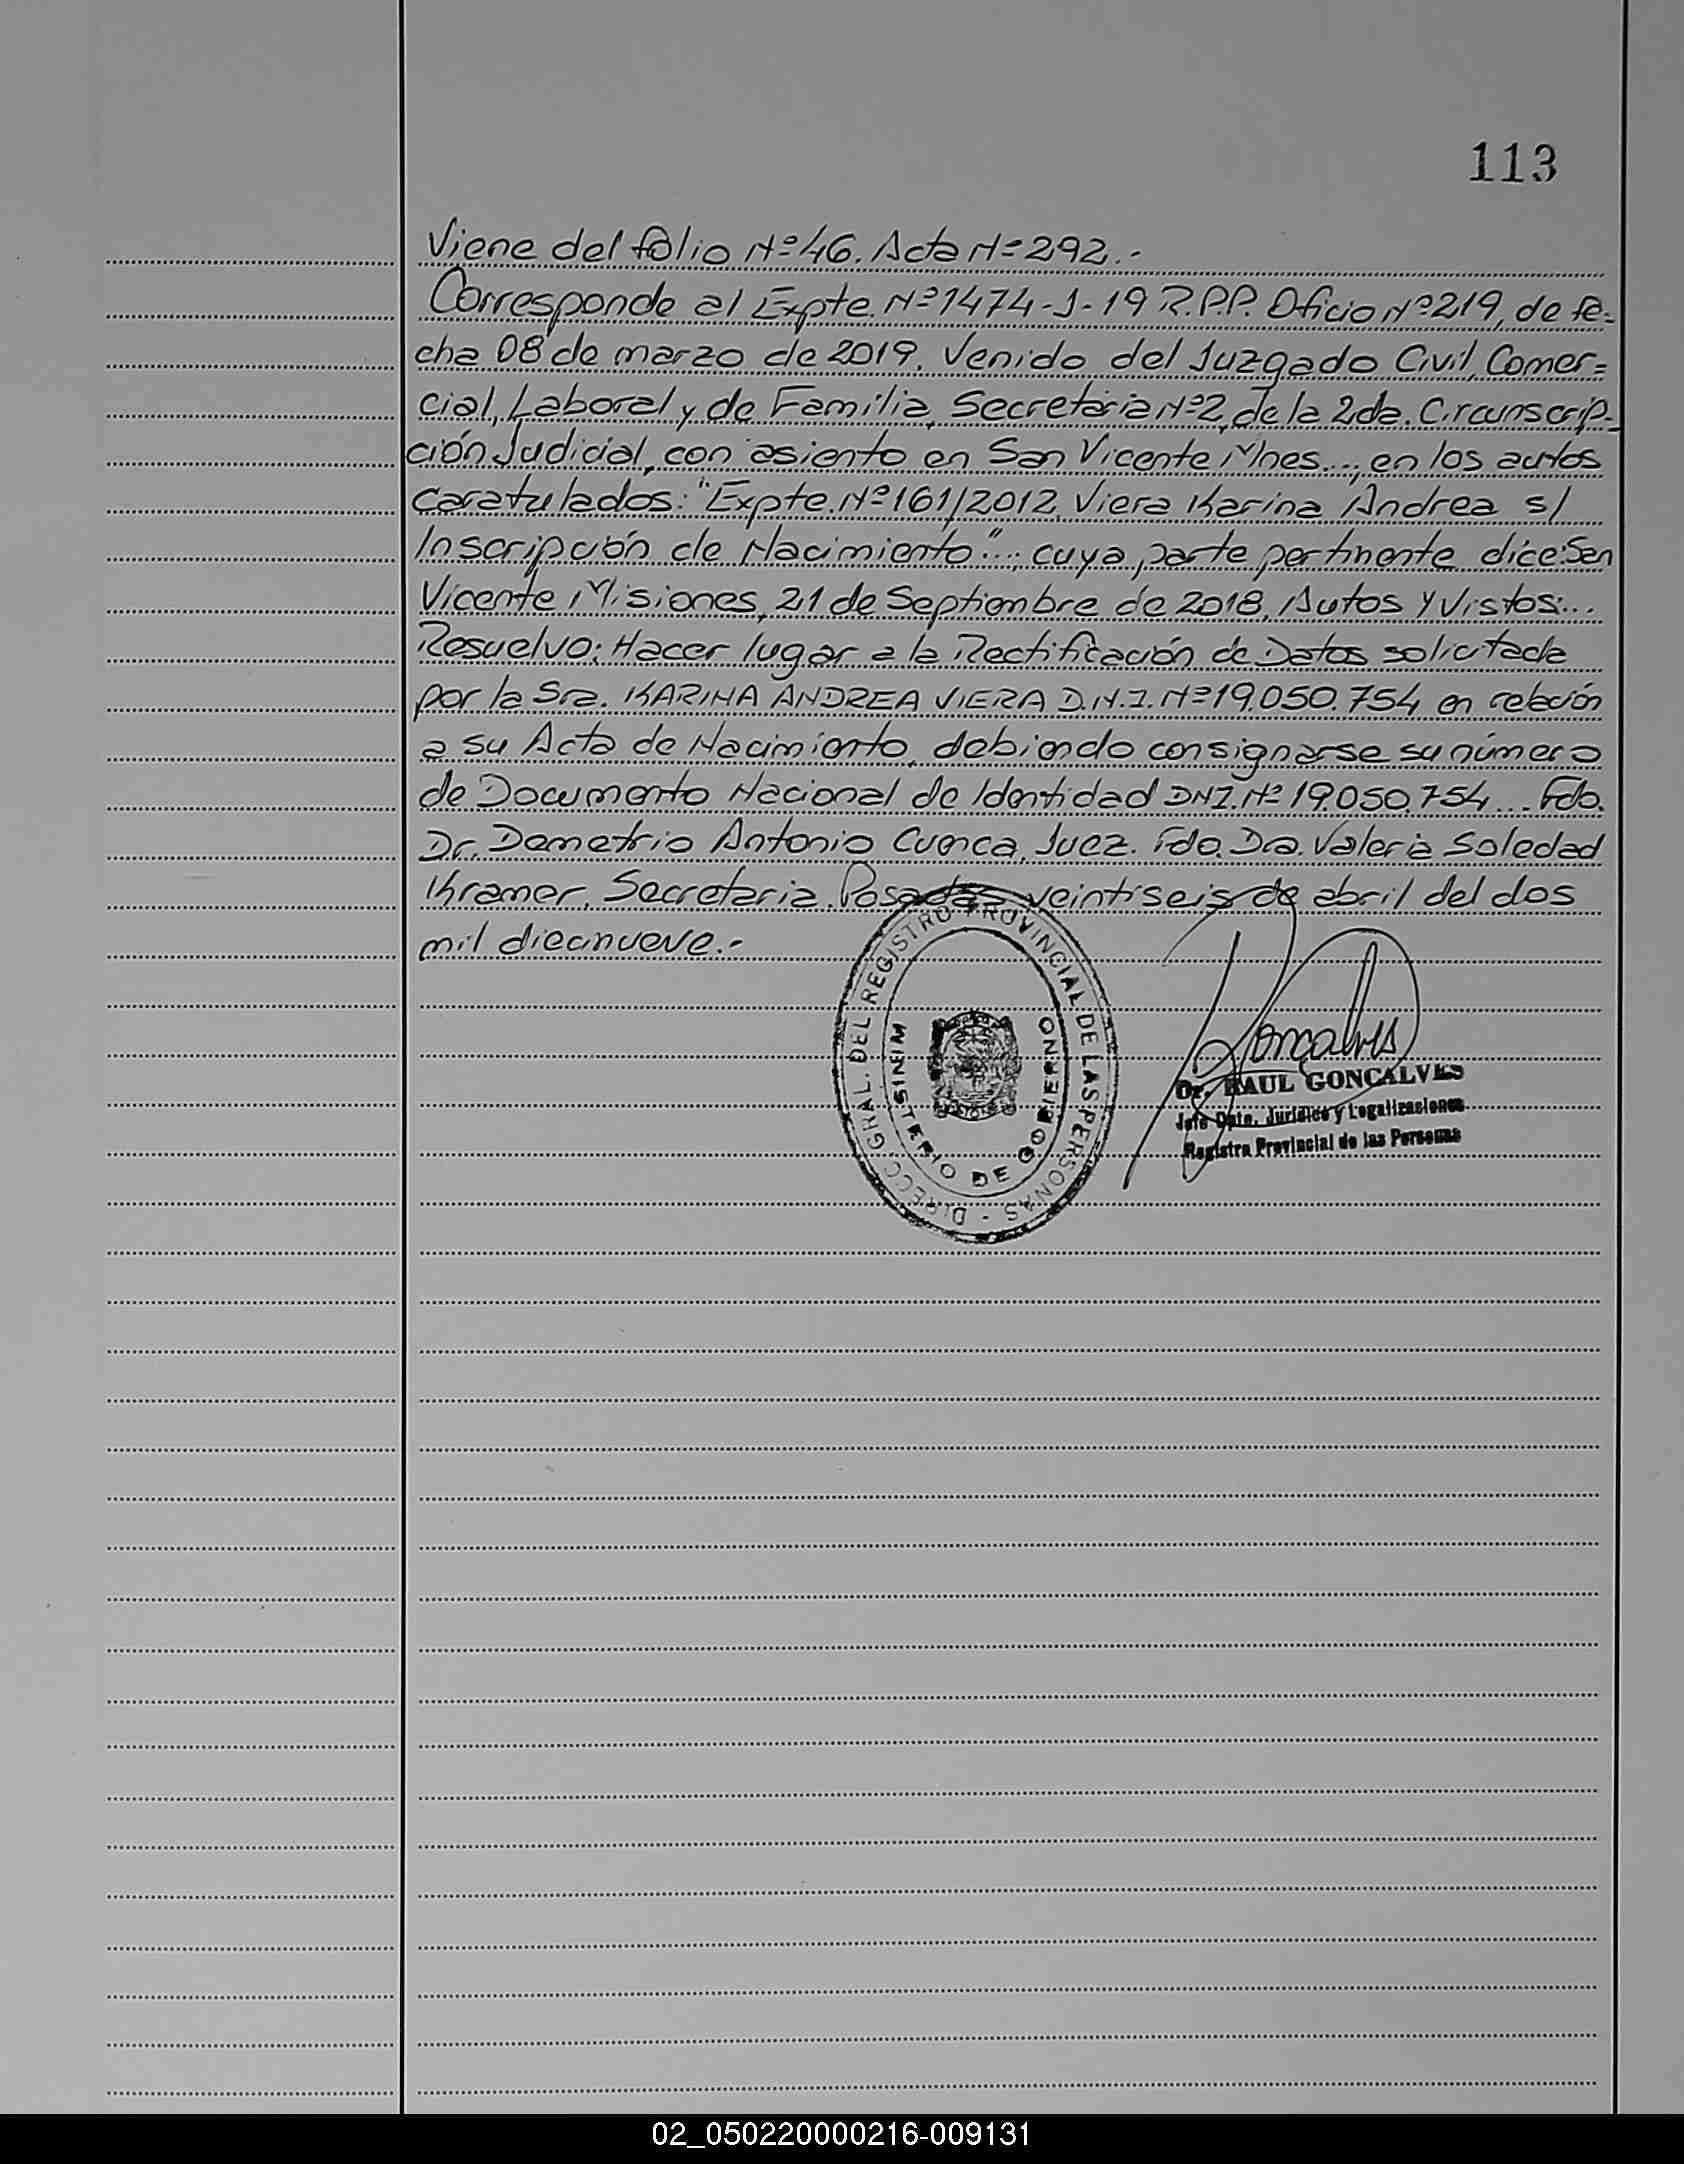 113
Viene del folio Nº 46. Acta Nº 292.-
Corresponde al Expte. Nº 1474-J-19 R.P.P. Oficio Nº 219, de fe-
cha 08 de marzo de 2019. Venido del Juzgado Civil, Comer=
cial, Laboral y de Familia, Secretaria Nº 2, de la 2da. Circunscrip-
ción Judicial, con asiento en San Vicente Mnes..., en los autos
caratulados: "Expte. Nº 161/2012, Viera Karina Andrea s/
Inscripción de Nacimiento"..., cuya parte pertinente dice: San
Vicente, Misiones, 21 de Septiembre de 2018, Autos y Vistos:...
Resuelvo: Hacer lugar a la Rectificación de Datos solicitada
por la Sra. KARINA ANDREA VIERA D.N.I. Nº 19.050.754 en relación
a su Acta de Nacimiento, debiendo consignarse su número
de Documento Nacional de Identidad DNI. Nº 19.050.754... Fdo.
Dr. Demetrio Antonio Cuenca, Juez. Fdo. Dra. Valeria Soledad
Kramer, Secretaria. Posadas, veintiseis de abril del dos
mil diecinueve.-
DIRECC. GRAL. DEL REGISTRO PROVINCIAL DE LAS PERSONAS -
MINISTERIO DE GOBIERNO
Goncalves
Dr. RAUL GONCALVES
Jefe Dpto. Jurídico y Legalizaciones
Registro Provincial de las Personas
02_050220000216-009131